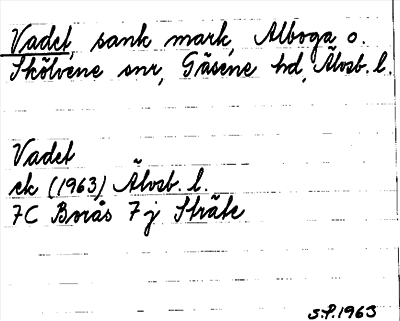 Vadet, sank mark, Alboga o.
Skölvene snr, Gäsene hd, Älvsb. l.
Vadet
ek (1963) Älvsb. l.
7C Borås 7j Stråle
S.P. 1963